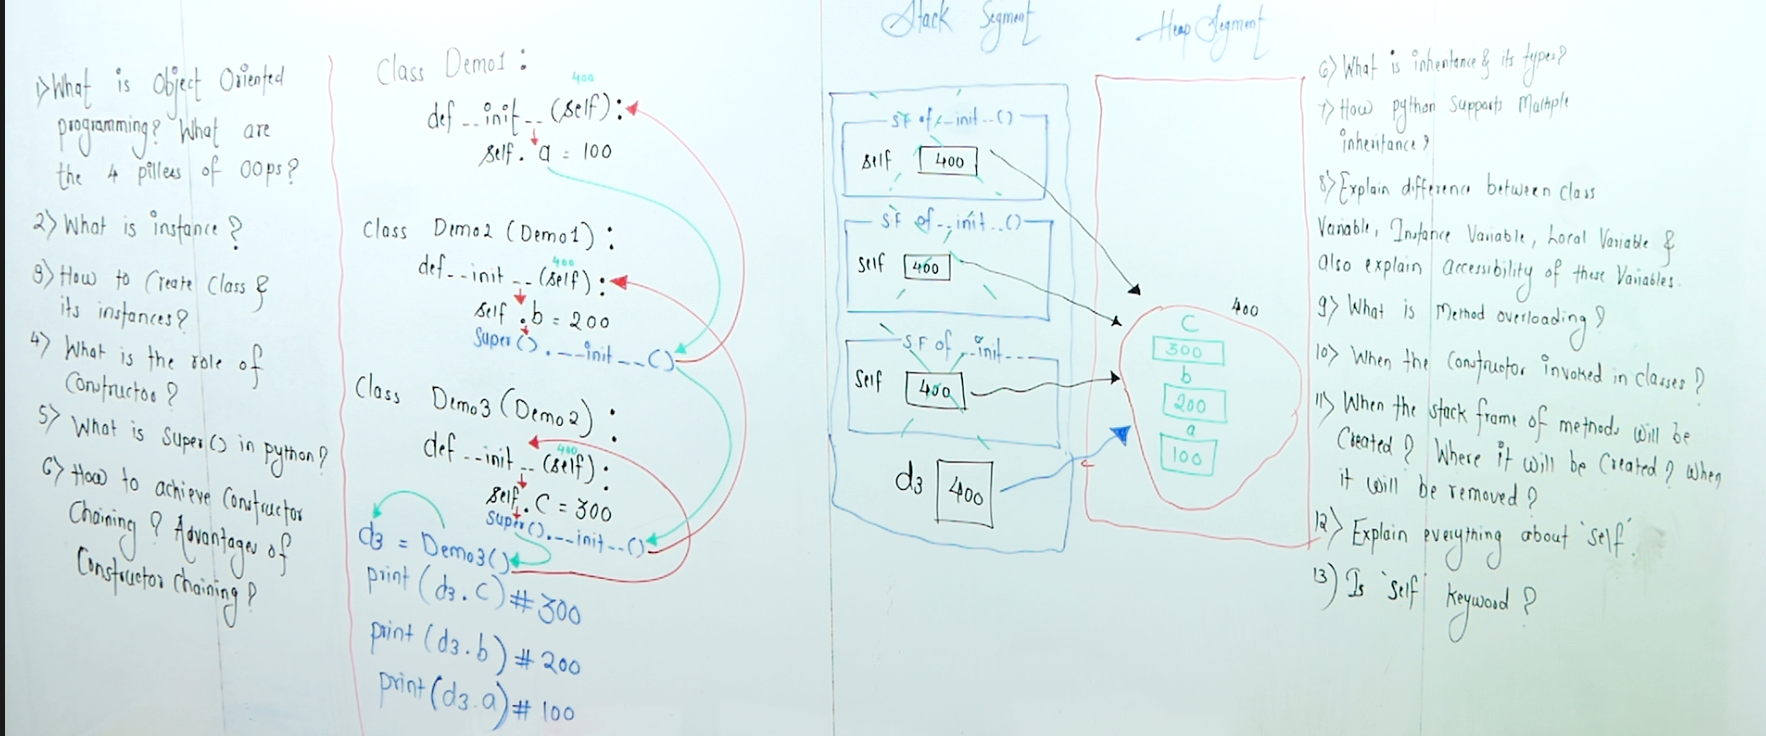 1) What is Object Oriented
programming? What are
the 4 pillers of OOps?
2) What is instance?
3) How to Create Class &
its instances?
4) What is the role of
Constructor?
5) What is Super() in python?
6) How to achieve Constructor
Chaining? Advantages of
Constructor chaining?
Class Demo1 :
400
def __init__(self):
self. a = 100
Class Demo2 (Demo1) :
400
def__init__(self):
self .b = 200
Super().__init__()
Class Demo3 (Demo2) :
def __init__(self):
400
self. C = 300
Super().__init__()
d3 = Demo3()
print (d3.C) # 300
print (d3.b) # 200
print (d3.a) # 100
Stack Segment
SF of __init__()
self 400
SF of __init__()
self 400
S.F of __init__
Self 400
d3 400
Heap Segment
400
C
300
b
200
a
100
6) What is inheritance & its types?
7) How python Supports Multiple
inheritance?
8) Explain difference between class
Variable, Instance Variable, Local Variable &
also explain accessibility of these Variables.
9) What is Method overloading?
10) When the Constructor invoked in classes?
11) When the stack frame of methods will be
Created? Where it will be Created? When
it will be removed?
12) Explain everything about 'self'.
13) Is 'self' Keyword?